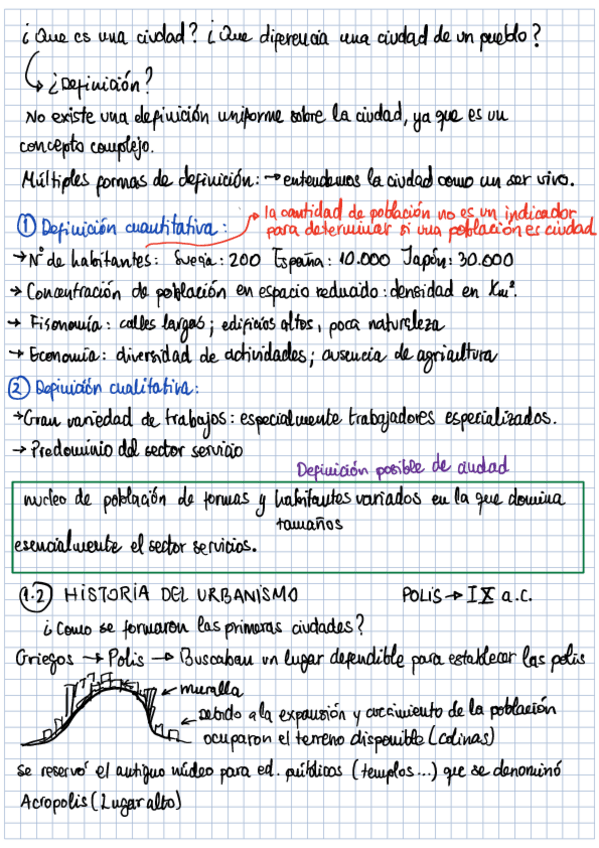 ¿Que es una ciudad? ¿Que diferencia una ciudad de un pueblo?
↳ ¿Definición?
No existe una definición uniforme sobre la ciudad, ya que es un
concepto complejo.
Múltiples formas de definición: → entendemos la ciudad como un ser vivo.
① Definición cuantitativa:
→ la cantidad de población no es un indicador
para determinar si una población es ciudad
→ Nº de habitantes: Suecia: 200 España: 10.000 Japón: 30.000
→ Concentración de población en espacio reducido: densidad en Km².
→ Fisonomía: calles largas; edificios altos, poca naturaleza
→ Economía: diversidad de actividades; ausencia de agricultura
② Definición cualitativa:
→ Gran variedad de trabajos: especialmente trabajadores especializados.
→ Predominio del sector servicio
Definición posible de ciudad
nucleo de población de formas y habitantes variados en la que domina
tamaños
esencialmente el sector servicios.
1.2 HISTORIA DEL URBANISMO POLIS → IX a.C.
¿Como se formaron las primeras ciudades?
Griegos → Polis → Buscaban un lugar defendible para establecer las polis
← muralla
← Debido a la expansión y crecimiento de la población
ocuparon el terreno disponible (colinas)
se reservó el antiguo núcleo para ed. públicos (templos...) que se denominó
Acropolis (Lugar alto)